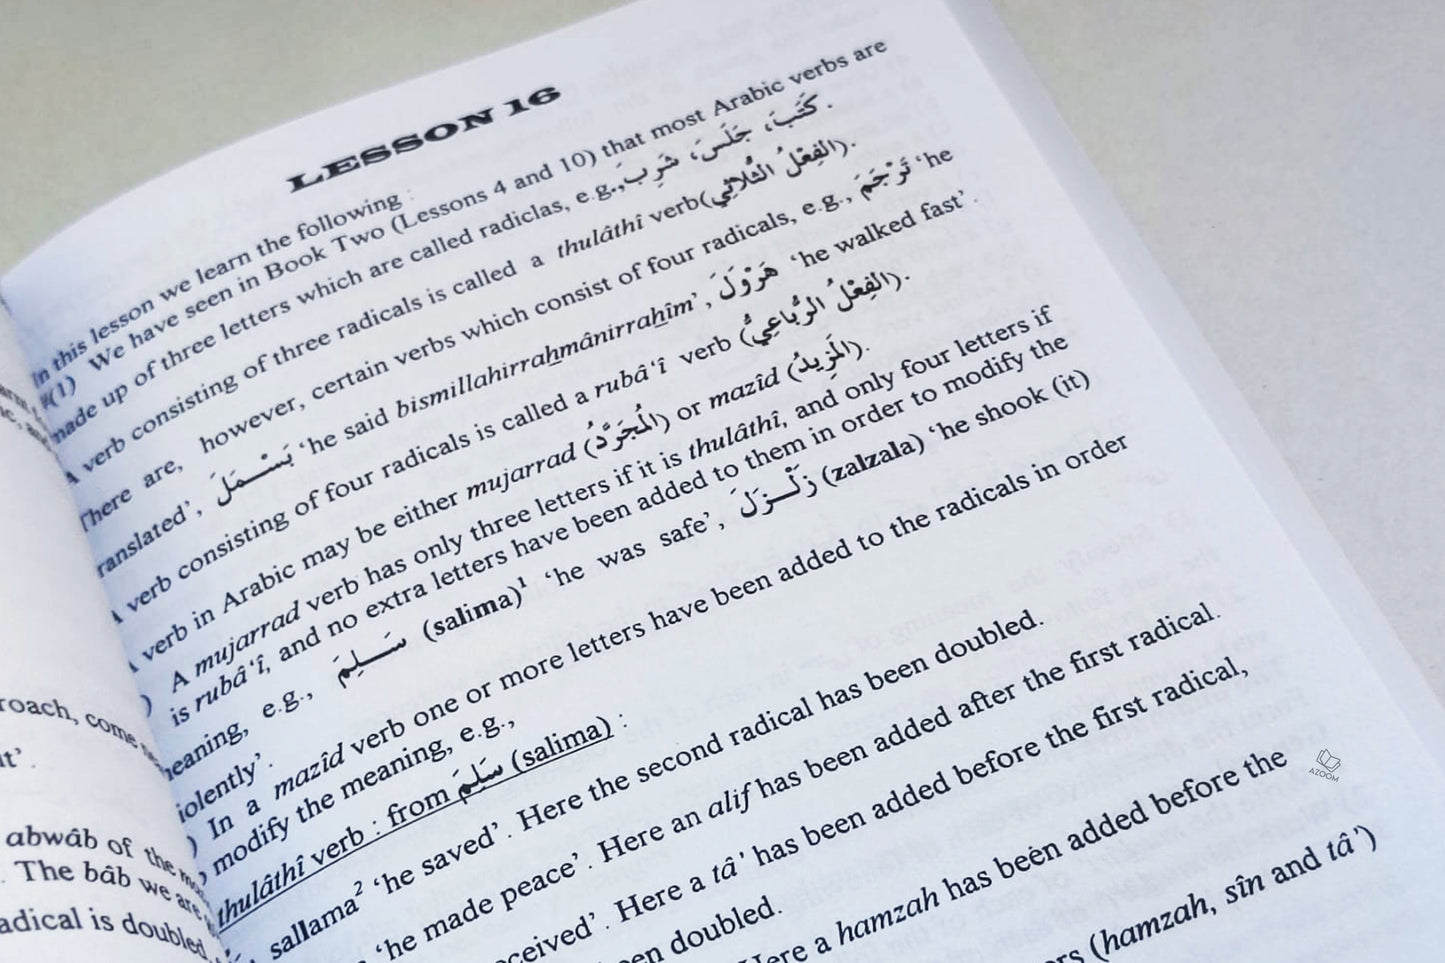 LESSON 16
In this lesson we learn the following :
#(1) We have seen in Book Two (Lessons 4 and 10) that most Arabic verbs are
made up of three letters which are called radiclas, e.g., كَتَبَ، جَلَسَ، شَرِبَ .
A verb consisting of three radicals is called a thulâthî verb(الفِعْلُ الثُّلاثِيُّ).
There are, however, certain verbs which consist of four radicals, e.g., تَرْجَمَ ‘he
ranslated’, بَسْمَلَ ‘he said bismillahirrahmânirrahîm’, هَرْوَلَ ‘he walked fast’.
A verb consisting of four radicals is called a rubâ‘î verb (الفِعْلُ الرُّبَاعِيُّ).
verb in Arabic may be either mujarrad (المُجَرَّدُ) or mazîd (المَزِيدُ).
) A mujarrad verb has only three letters if it is thulâthî, and only four letters if
is rubâ‘î, and no extra letters have been added to them in order to modify the
neaning, e.g., سَلِمَ (salima)¹ ‘he was safe’, زَلْزَلَ (zalzala) ‘he shook (it)
iolently’.
) In a mazîd verb one or more letters have been added to the radicals in order
modify the meaning, e.g.,
thulâthî verb : from سَلِمَ (salima) :
sallama² ‘he saved’. Here the second radical has been doubled.
‘he made peace’. Here an alif has been added after the first radical.
ceived’. Here a tâ’ has been added before the first radical,
en doubled.
Here a hamzah has been added before the
rs (hamzah, sîn and tâ’)
roach, come
it’.
abwâb of the
. The bâb we are
adical is doubled.
AZOOM